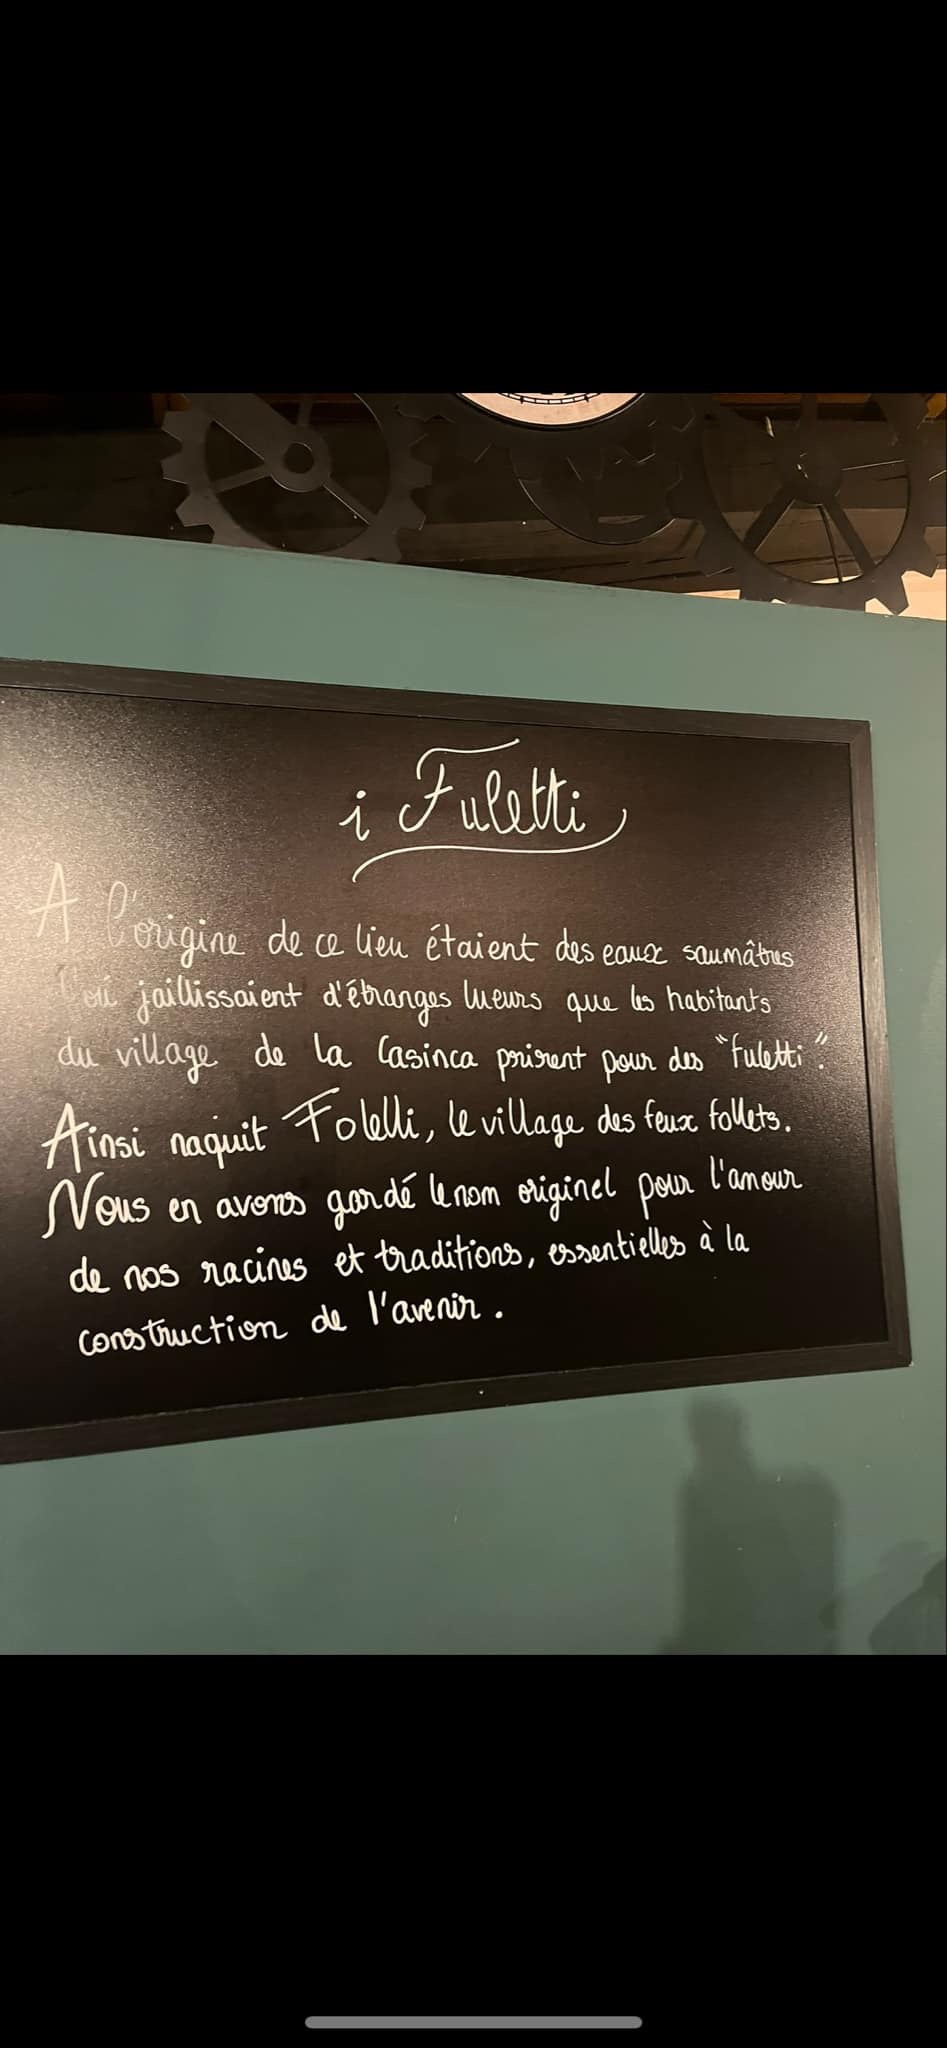 i Fuletti
A l'origine de ce lieu étaient des eaux saumâtres
d'où jaillissaient d'étranges lueurs que les habitants
du village de la Casinca prirent pour des "fuletti".
Ainsi naquit Folelli, le village des feux follets.
Nous en avons gardé le nom originel pour l'amour
de nos racines et traditions, essentielles à la
construction de l'avenir.